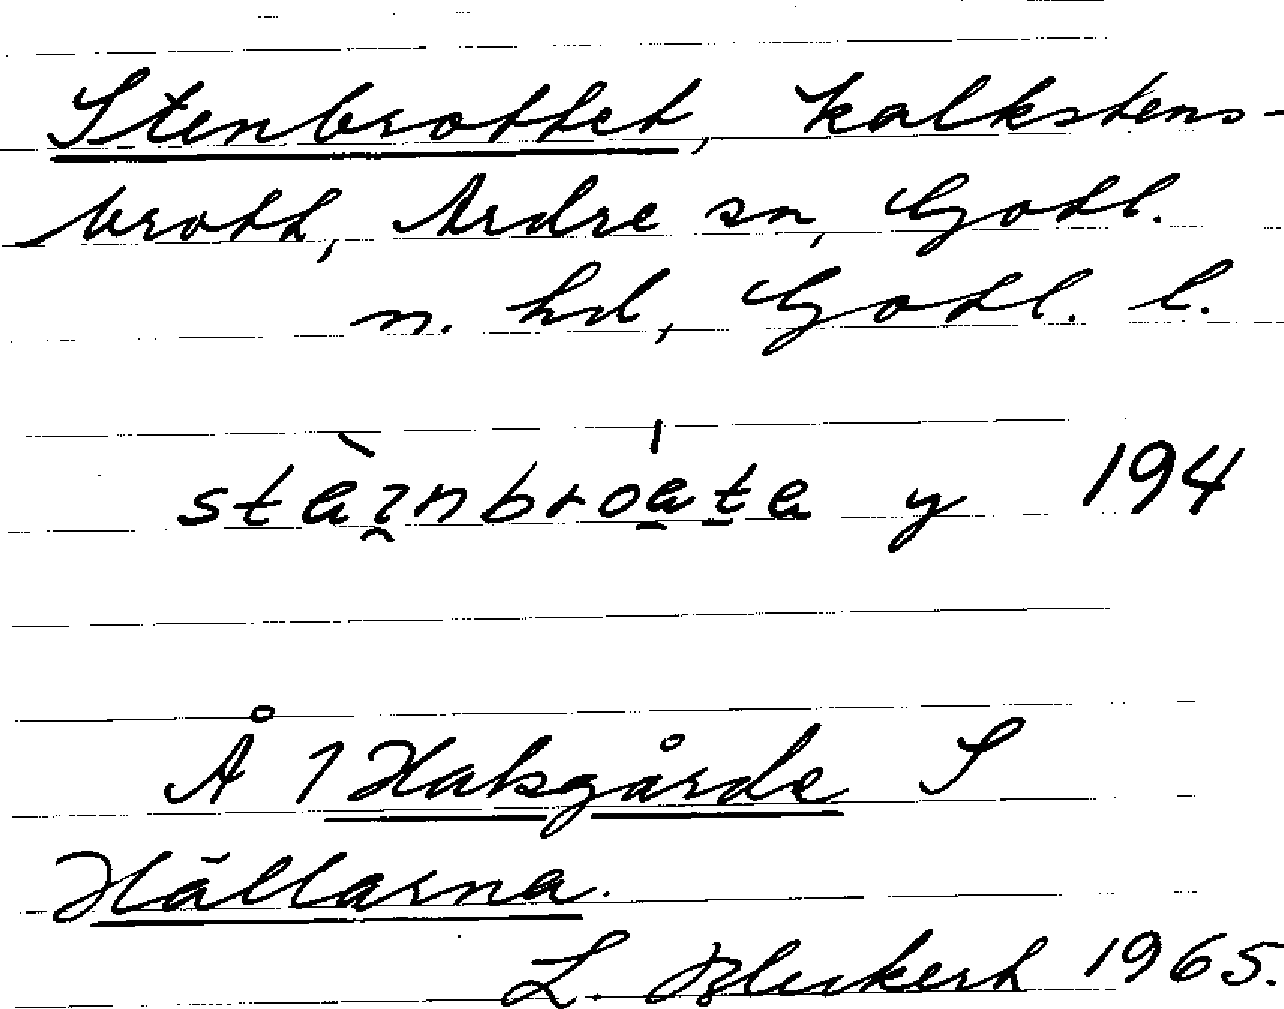 Stenbrottet, kalkstens-
brott, Ardre sn, Gotl.
n. hd, Gotl. l.
stèi̯nbroa̱ṯa y 194
Å 1 Halsgårde S
Hällarna.
L. Bleckert 1965.